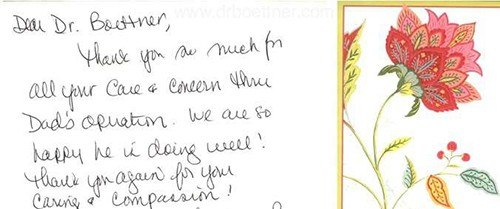 www.drboettner.com
Dear Dr. Boettner,
Thank you so much for
all your care & concern thru
Dad's operation. We are so
happy he is doing well!
Thank you again for your
caring & compassion!